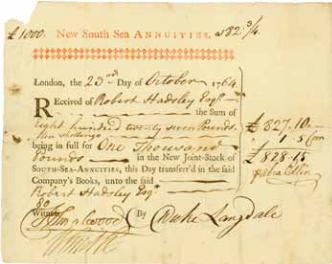 £1000. New South Sea ANNUITIES. at 82 3/4
London, the 23rd Day of October 1764
Received of Robert Hadsley Esqr
the Sum of
Eight hundred twenty seven Pounds
Ten shillings £827.10
being in full for One Thousand
Pounds in the New Joint-Stock of £828.15
SOUTH-SEA-ANNUITIES, this Day transferr'd in the said
Company's Books, unto the said
Robert Hadsley Esqr
Witness By Marke Langdale